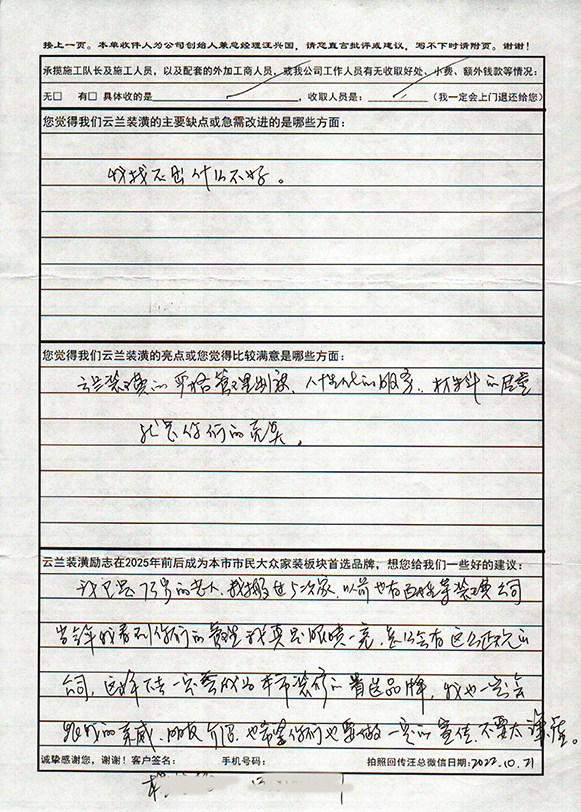 接上一页。本单收件人为公司创始人兼总经理汪兴国，请您直言批评或建议，写不下时请附页。谢谢！
承揽施工队长及施工人员，以及配套的外加工商人员，或我公司工作人员有无收取好处、小费、额外钱款等情况：
无□ 有□ 具体收的是 ，收取人员是： （我一定会上门退还给您）
您觉得我们云兰装潢的主要缺点或急需改进的是哪些方面：
我找不出什么不好。
您觉得我们云兰装潢的亮点或您觉得比较满意是哪些方面：
云兰装潢的严格管理制度、人性化的服务、材料的质量
就是你们的亮点。
云兰装潢励志在2025年前后成为本市市民大众家装板块首选品牌，想您给我们一些好的建议：
我已是73岁的老人，我搬过5次家，以前也有 装潢公司
当年我看到你们的管理我真是眼睛一亮，怎么会有这么正规的
公司，这样下去一定会成为本市装修的首选品牌，我也一定会
跟我的亲戚、朋友介绍，也希望你们也要做一定的宣传，不要太谦虚。
诚挚感谢您，谢谢！客户签名： 手机号码： 拍照回传汪总微信日期：2022.10.21